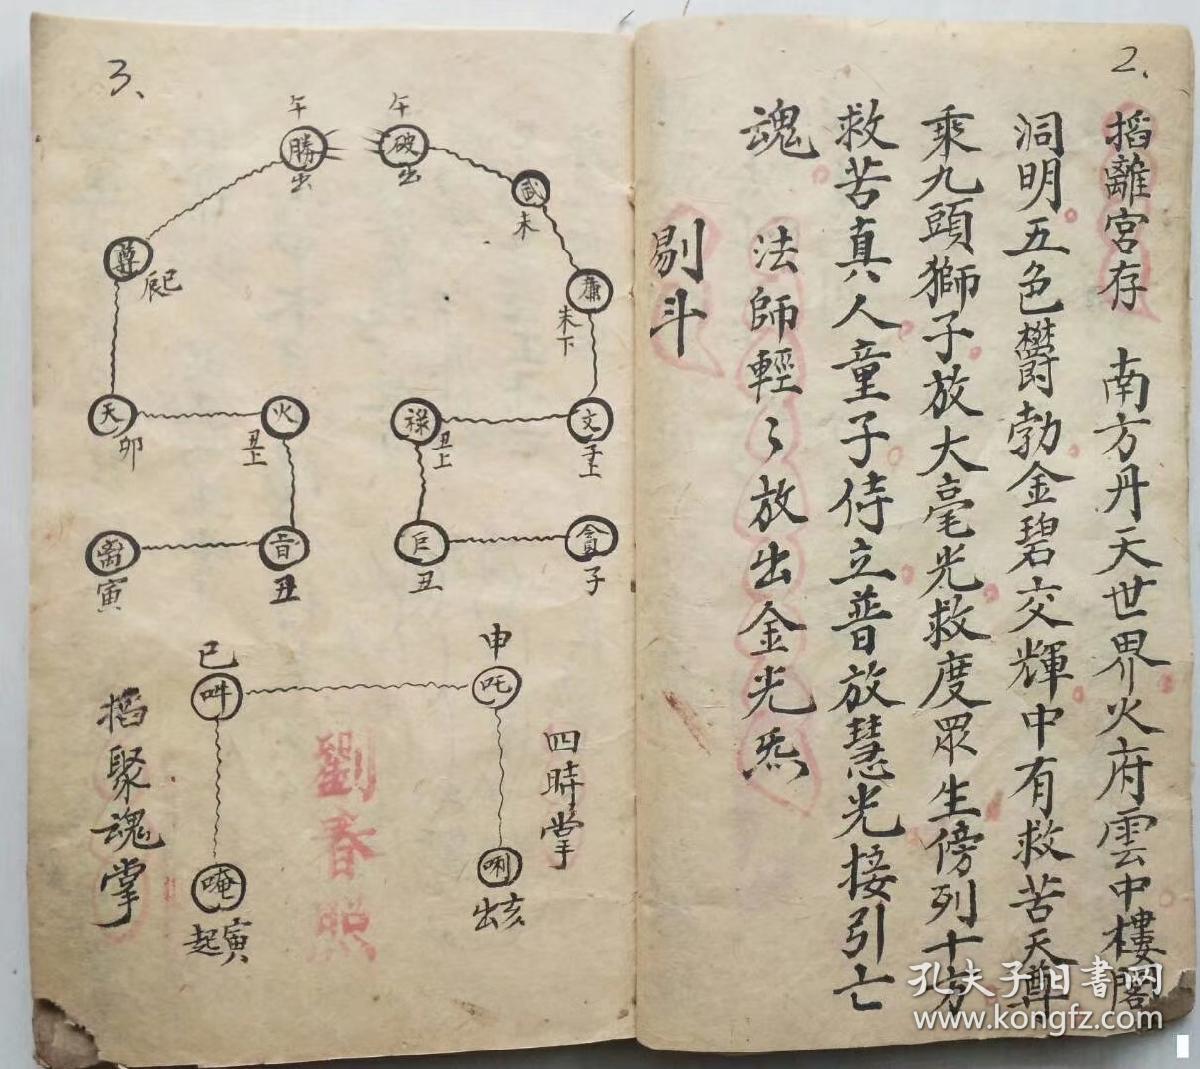 2、
搯離宮存 南方丹天世界火府雲中樓閣
洞明五色欝勃金碧交輝中有救苦天尊
乘九頭獅子放大毫光救度眾生傍列十方
救苦真人童子侍立普放慧光接引亡
魂 法師輕々放出金光炁
剔斗
3、
午 午
勝 破
出 出
武
未
尊
辰巳
廉
未下
天 火 祿 文
卯 丑上 丑上 子上
离 音 巨 貪
寅 丑 丑 子
申
巳
吽 吒
四時掌
唵 唎
寅起 亥出
劉春照
搯聚魂掌
孔夫子旧书网
www.kongfz.com